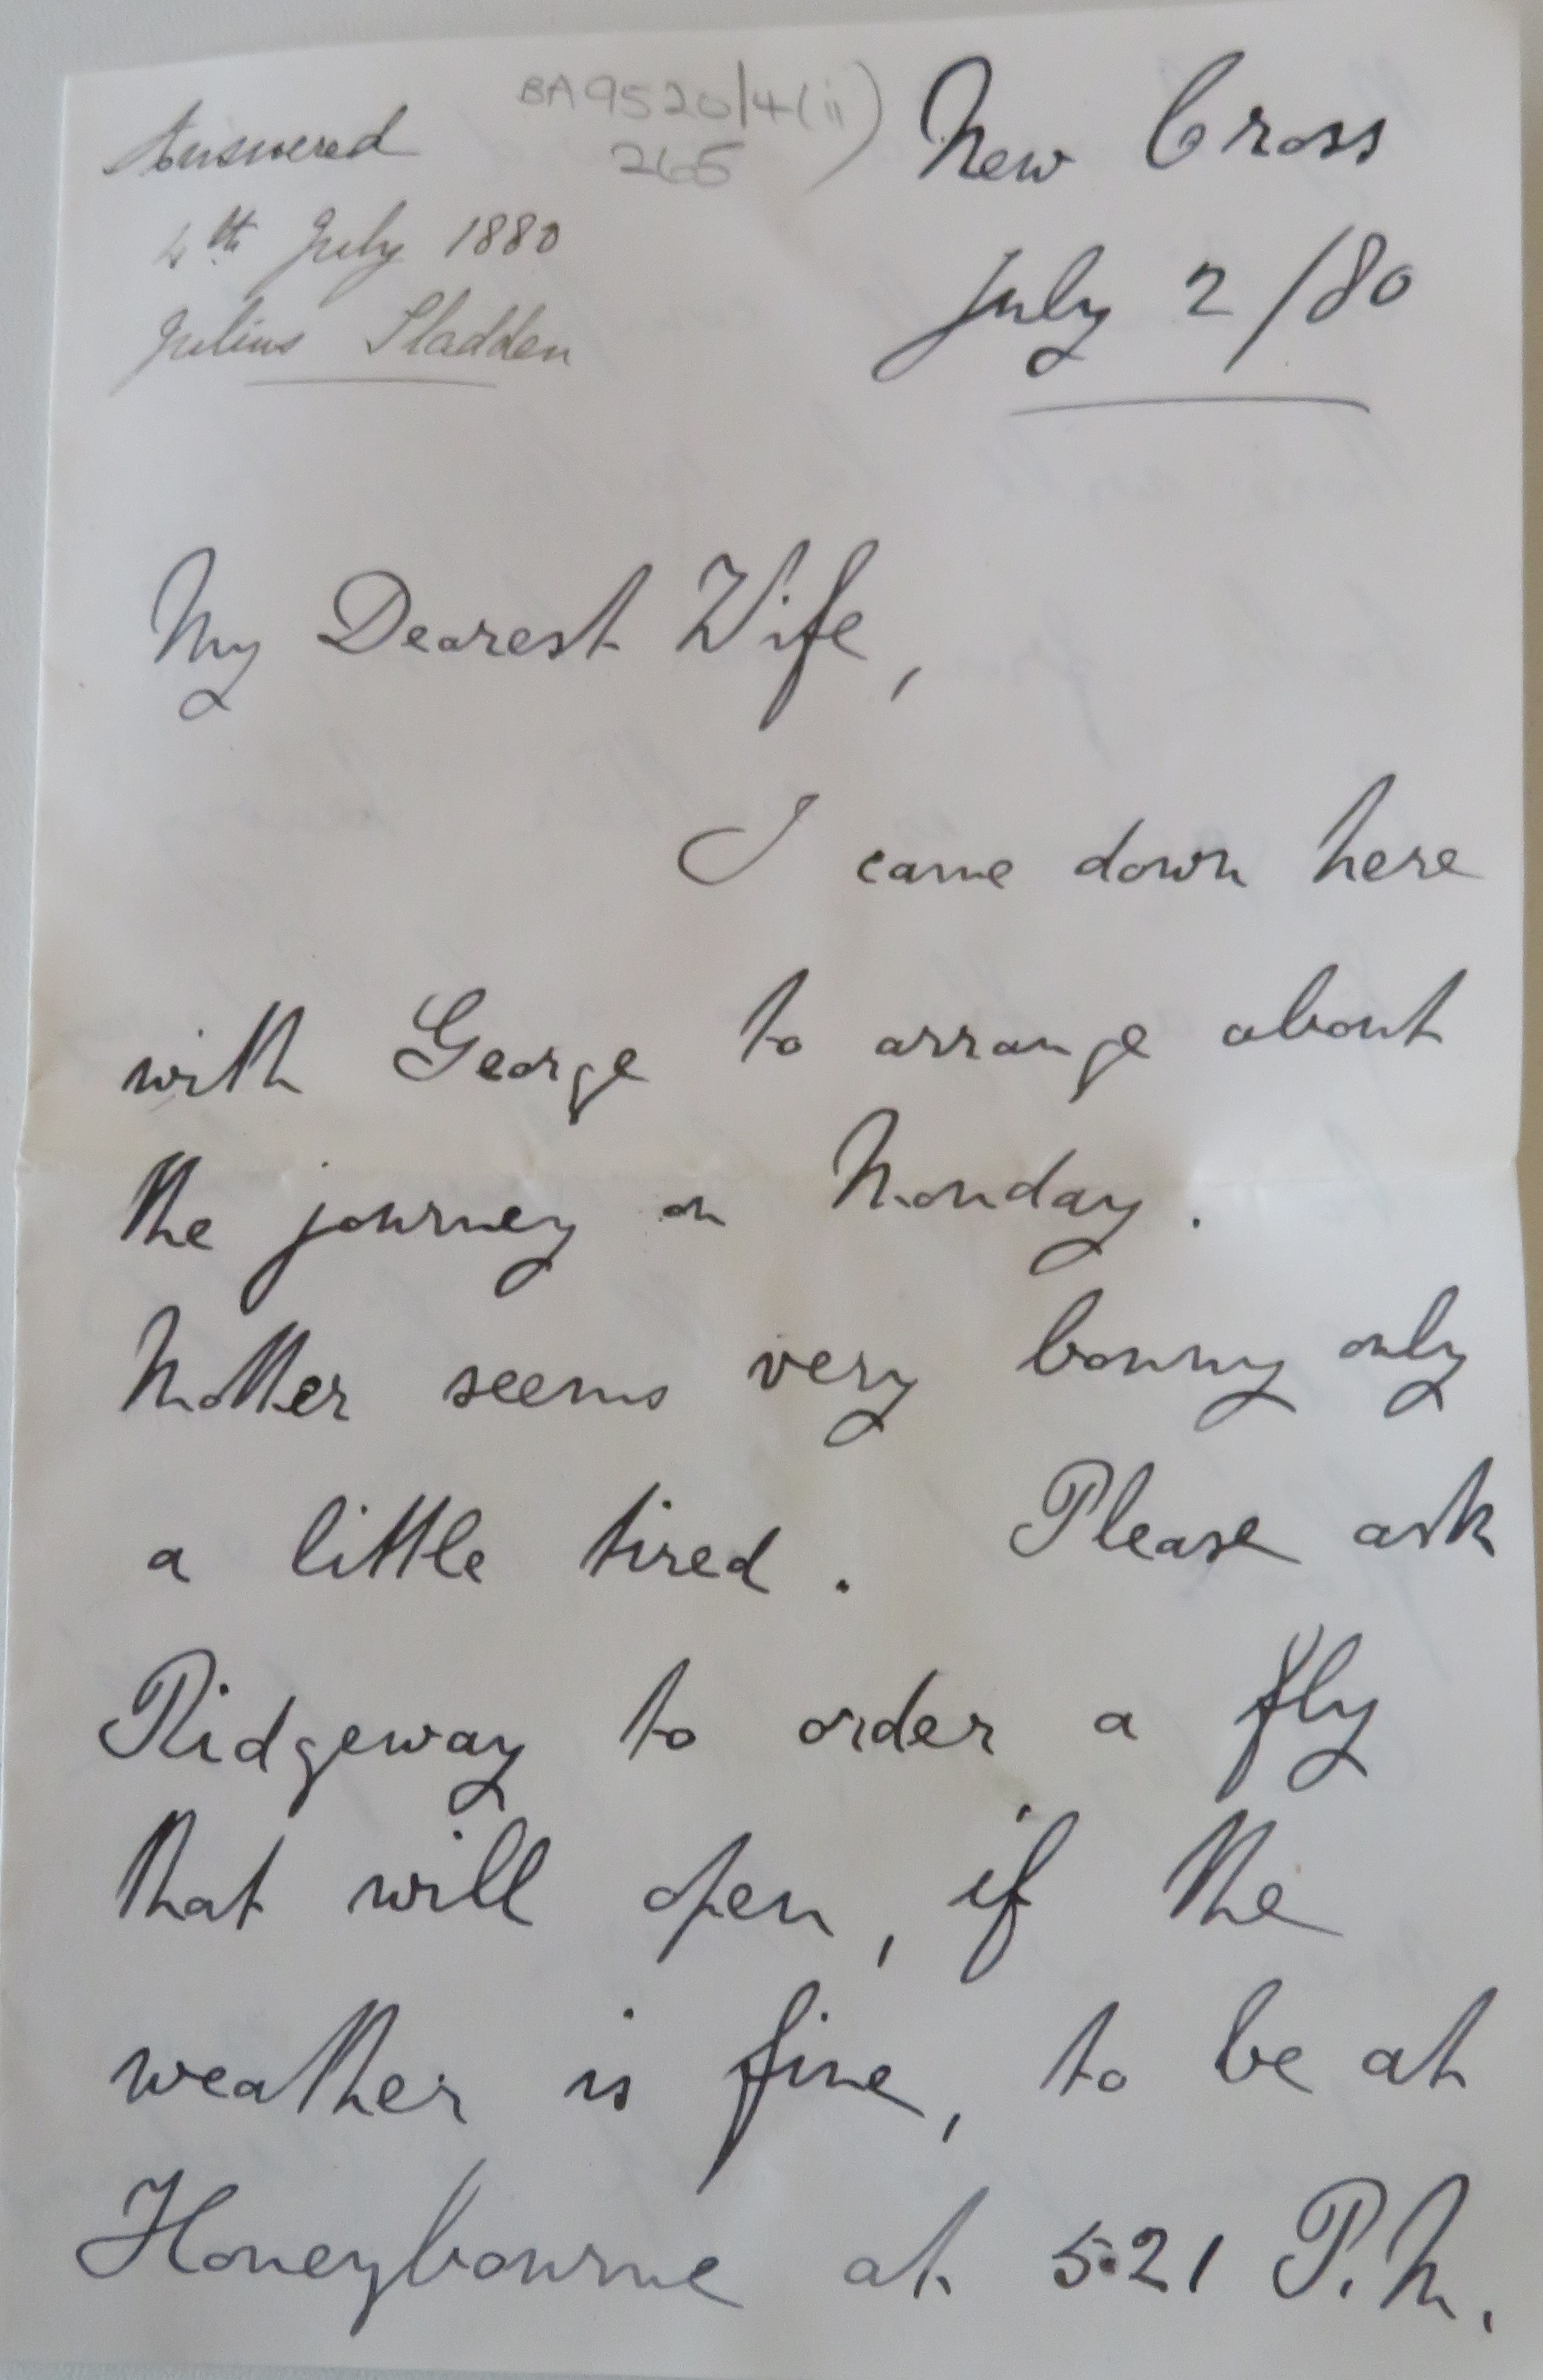 BA9520/4(ii)
265
Answered
4th July 1880
Julius Sladden
New Cross
July 2/80
My Dearest Wife,
I came down here
with George to arrange about
the journey on Monday.
Mother seems very bonny only
a little tired. Please ask
Ridgeway to order a fly
that will open, if the
weather is fine, to be at
Honeybourne at 5.21 P.M.